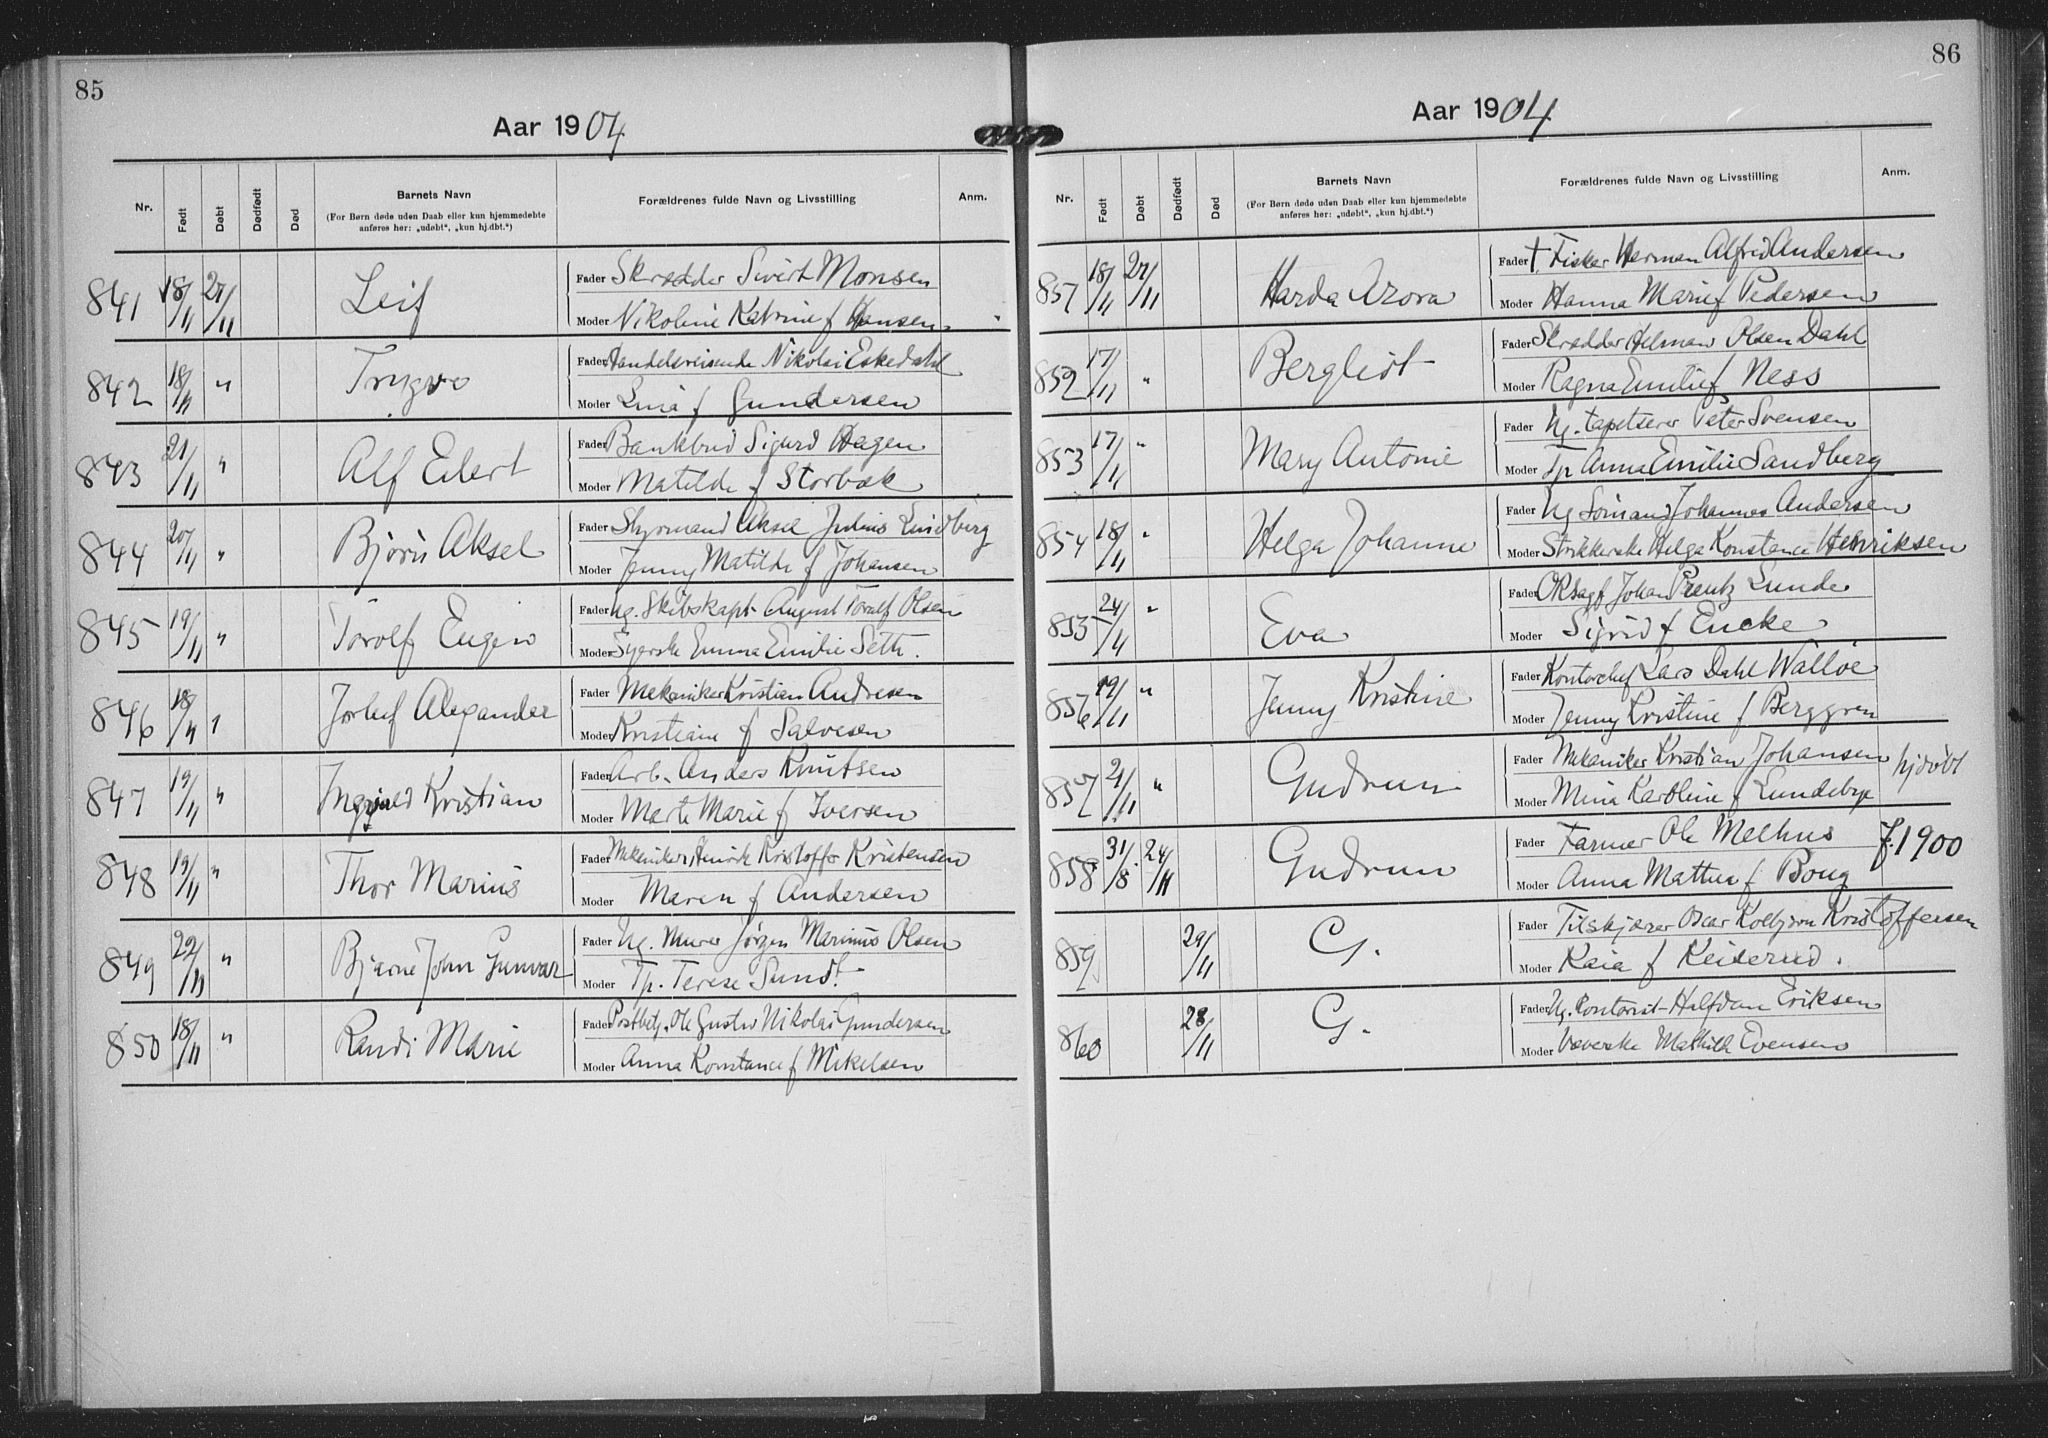 85
Aar 1904.
Nr. Født Døbt Dødfødt Død Barnets Navn Forældrenes fulde Navn og Livsstilling Anm.
(For Børn døde uden Daab eller kun hjemmedøbte
anføres her: „udøbt“, „kun hj.dbt.“)
841 18/11 27/11 Leif Fader Skrædder Sivert Monsen
Moder Nikoline Katrine f Hansen
842 18/11 " Trygve Fader Handelsreisende Nikolai Eskedahl
Moder Lina f Gundersen
843 21/11 " Alf Eilert Fader Bankbud Sigurd Hagen
Moder Matilde f Storbæk
844 20/11 " Bjørn Aksel Fader Styrmand Aksel Julius Lindberg
Moder Jenny Matilde f Johansen
845 19/11 " Torolf Eugen Fader Ug. Skibskapt August Torolf Olsen
Moder Syerske Emma Emilie Seth.
846 18/11 " Alexander Fader Mekaniker Kristian Andresen
Moder Kristiane f Salvesen
847 19/11 " Ingvald Kristian Fader Arb. Anders Knutsen
Moder Marte Marie f Iversen
848 19/11 " Thor Marius Fader Mekaniker Henrik Kristoffer Kristensen
Moder Maren f Andersen
849 22/11 " Bjarne John Gunvar Fader Ug. Murer Jørgen Marinius Olsen
Moder Tp. Terese Sundt.
850 18/11 " Randi Marie Fader Postbetj. Ole Gustav Nikolai Gundersen
Moder Anna Konstance f Mikelsen
86
Aar 1904.
Nr. Født Døbt Dødfødt Død Barnets Navn Forældrenes fulde Navn og Livsstilling Anm.
(For Børn døde uden Daab eller kun hjemmedøbte
anføres her: „udøbt“, „kun hj.dbt.“)
851 18/11 27/11 Harda Azora Fader † Fisker Herman Alfred Andersen
Moder Hanna Marie f Pedersen
852 17/11 " Bergliot Fader Skrædder Helman Olsen Dahl
Moder Ragna Emilie f Ness
853 17/11 " Mary Antonie Fader Ug. tapetserer Peter Svensen
Moder Tp Anna Emilie Sandberg
854 18/11 " Helga Johanne Fader Ug Sømand Johannes Andersen
Moder Strikkerske Helga Konstance Henriksen
855 24/11 " Eva Fader ORsagf Johan Prentz Lunde
Moder Sigrid f Encke
856 19/11 " Jenny Kristine Fader Kontorchef Lars Dahl Walløe
Moder Jenny Kristine f Berggren
857 21/11 " Gudrun Fader Mekaniker Kristian Johansen hjdøbt
Moder Mina Karoline f Lundebye
858 31/8 24/11 Gudrun Fader Farmer Ole Melhus f. 1900
Moder Anna Mattea f Boug
859 29/11 G. Fader Tilskjærer Oscar Kolbjørn Kristoffersen
Moder Kaia f Keiserud.
860 28/11 G. Fader Ug. Kontorist Halfdan Eriksen
Moder Væverske Mathilde Evensen